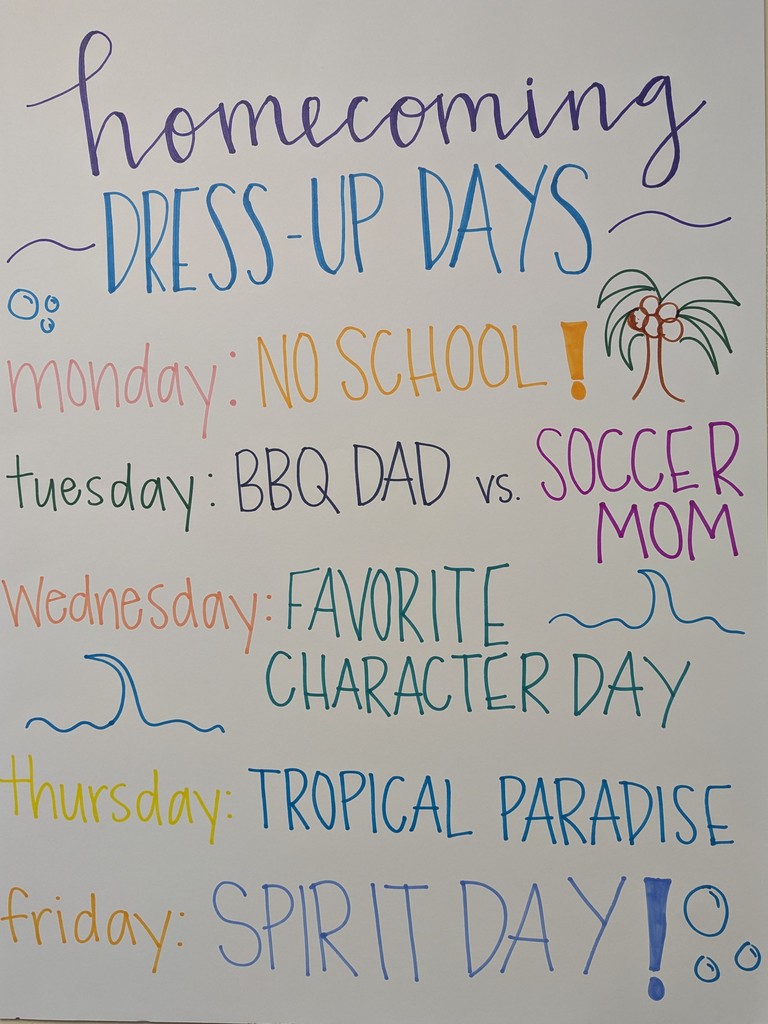 homecoming
DRESS-UP DAYS
monday: NO SCHOOL!
tuesday: BBQ DAD vs. SOCCER
MOM
wednesday: FAVORITE
CHARACTER DAY
thursday: TROPICAL PARADISE
friday: SPIRIT DAY!